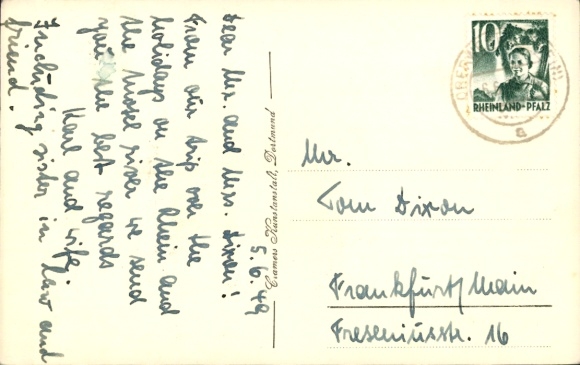 5.6.49
Dear Mr. and Mrs. Dixon!
From our trip over the
holidays on the Rhein and
the Mosel river we send
you the best regards
Karl and wife.
Including sister in law and
friend.
Cramers Kunstanstalt, Dortmund
10
RHEINLAND-PFALZ
a
Mr.
Tom Dixon
Frankfurt/Main
Freseniusstr. 16